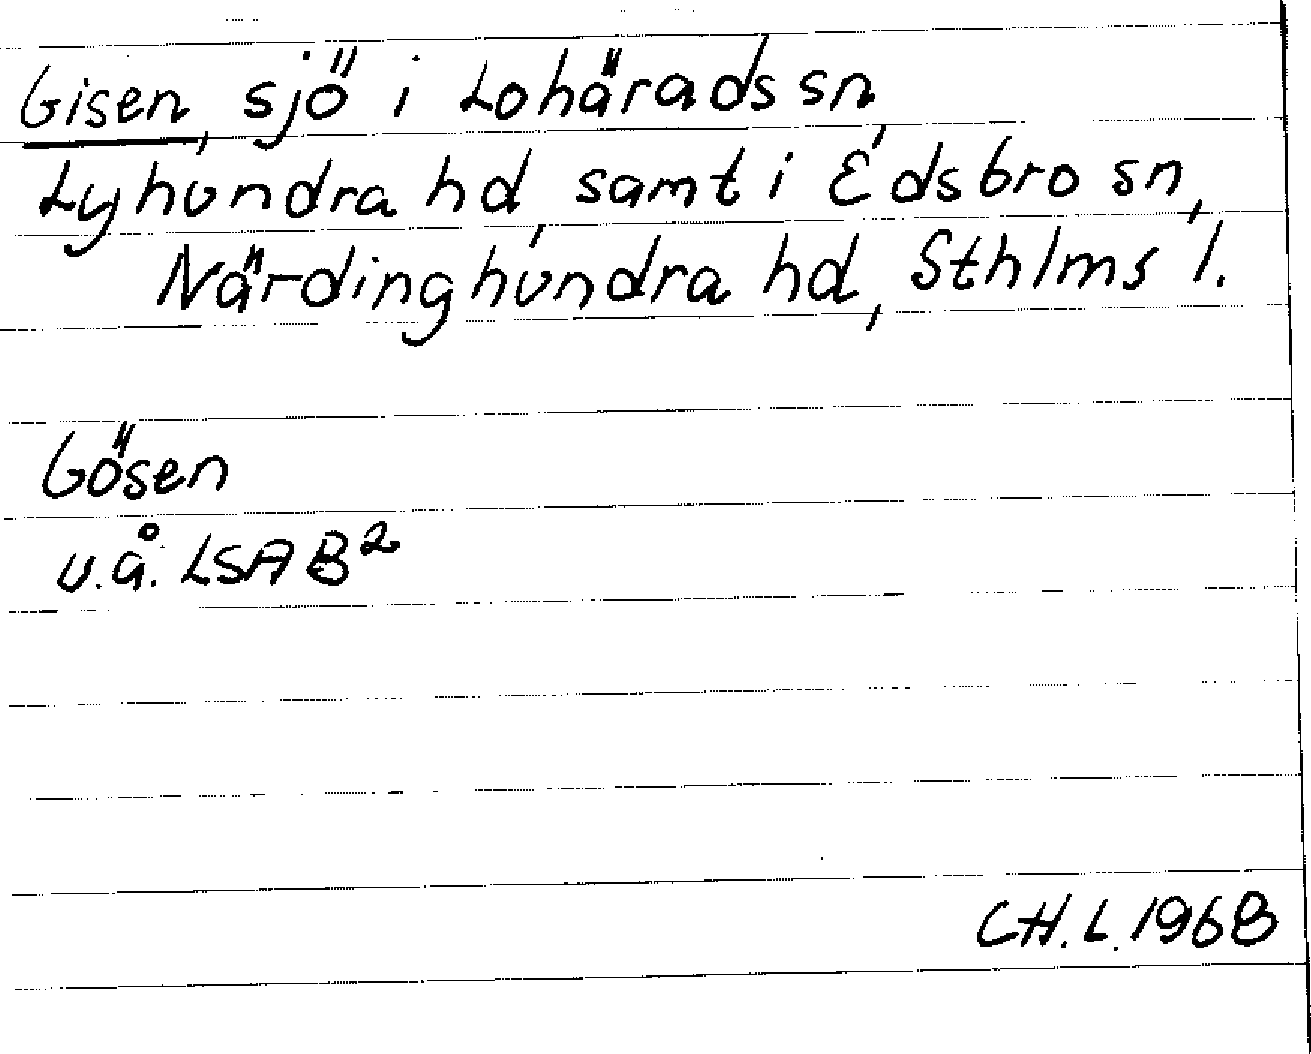 Gisen, sjö i Lohärads sn,
Lyhundra hd, samt i Edsbro sn,
Närdinghundra hd, Sthlms l.
Gösen
u.å. LSA B²
CH.L. 1968